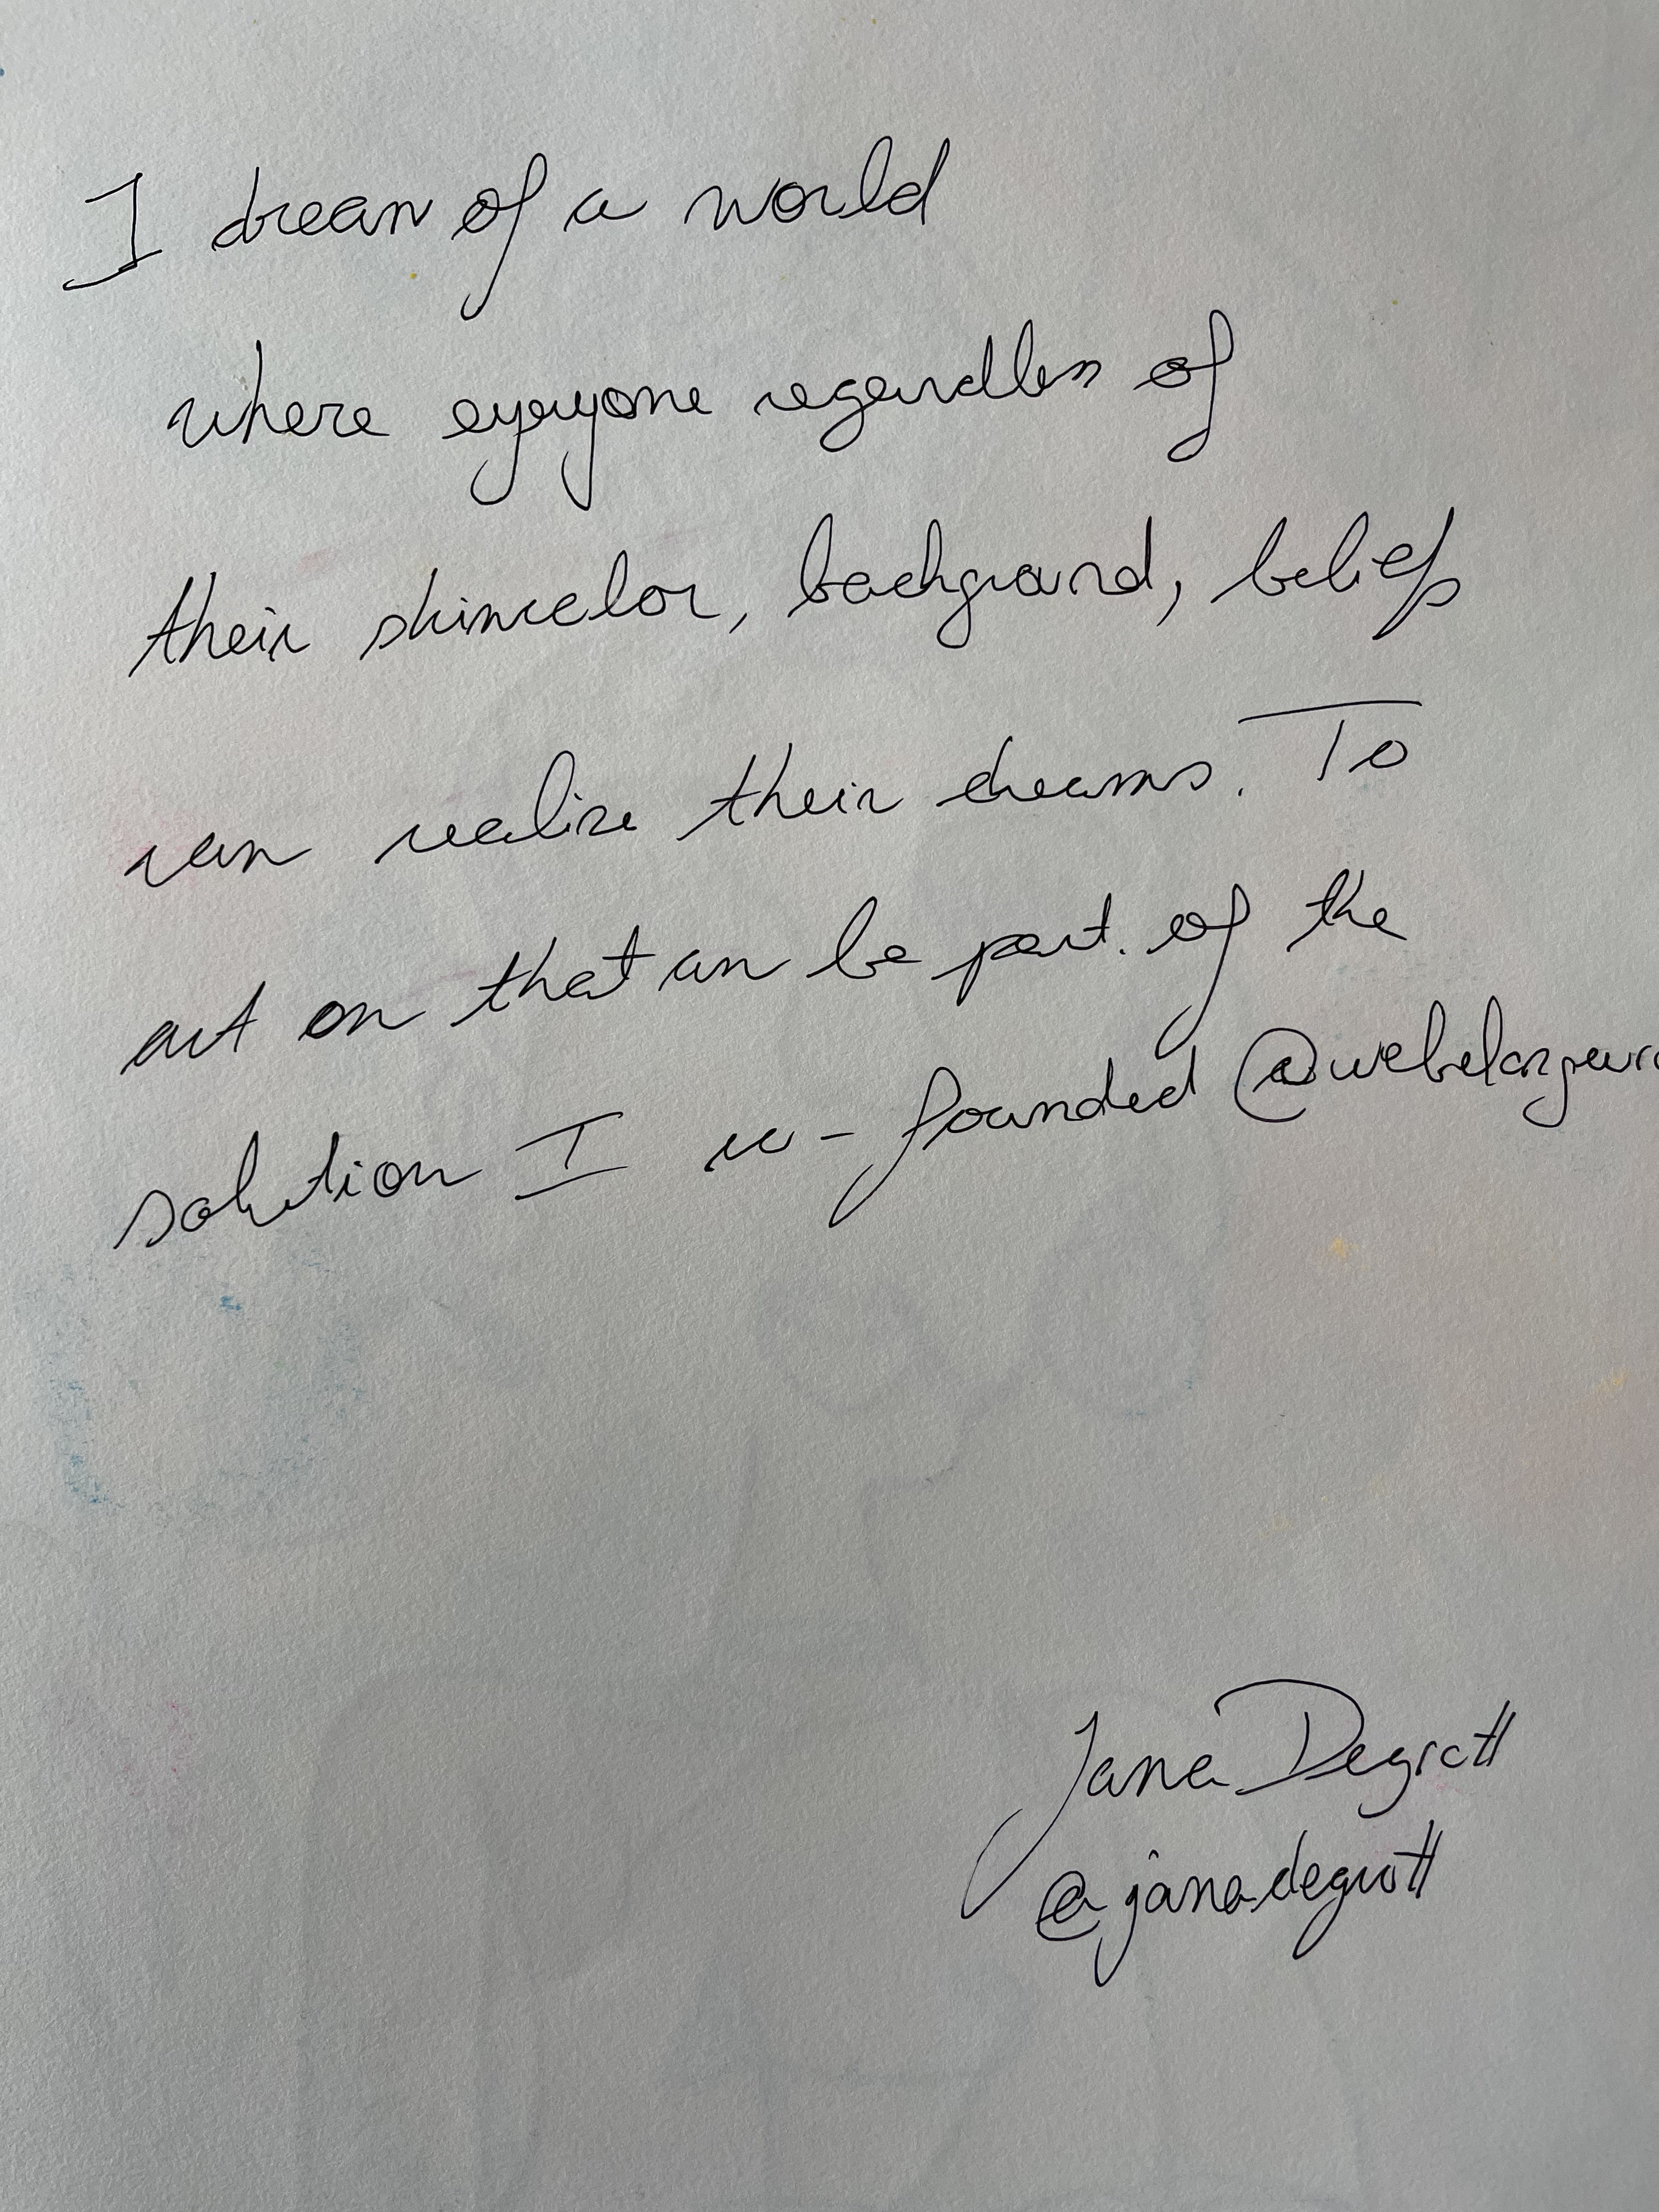 I dream of a world
where everyone regardless of
their skincolor, background, beliefs
can realize their dreams. To
act on that an be part. of the
solution I co-founded
Jana Degrott
@janadegrott